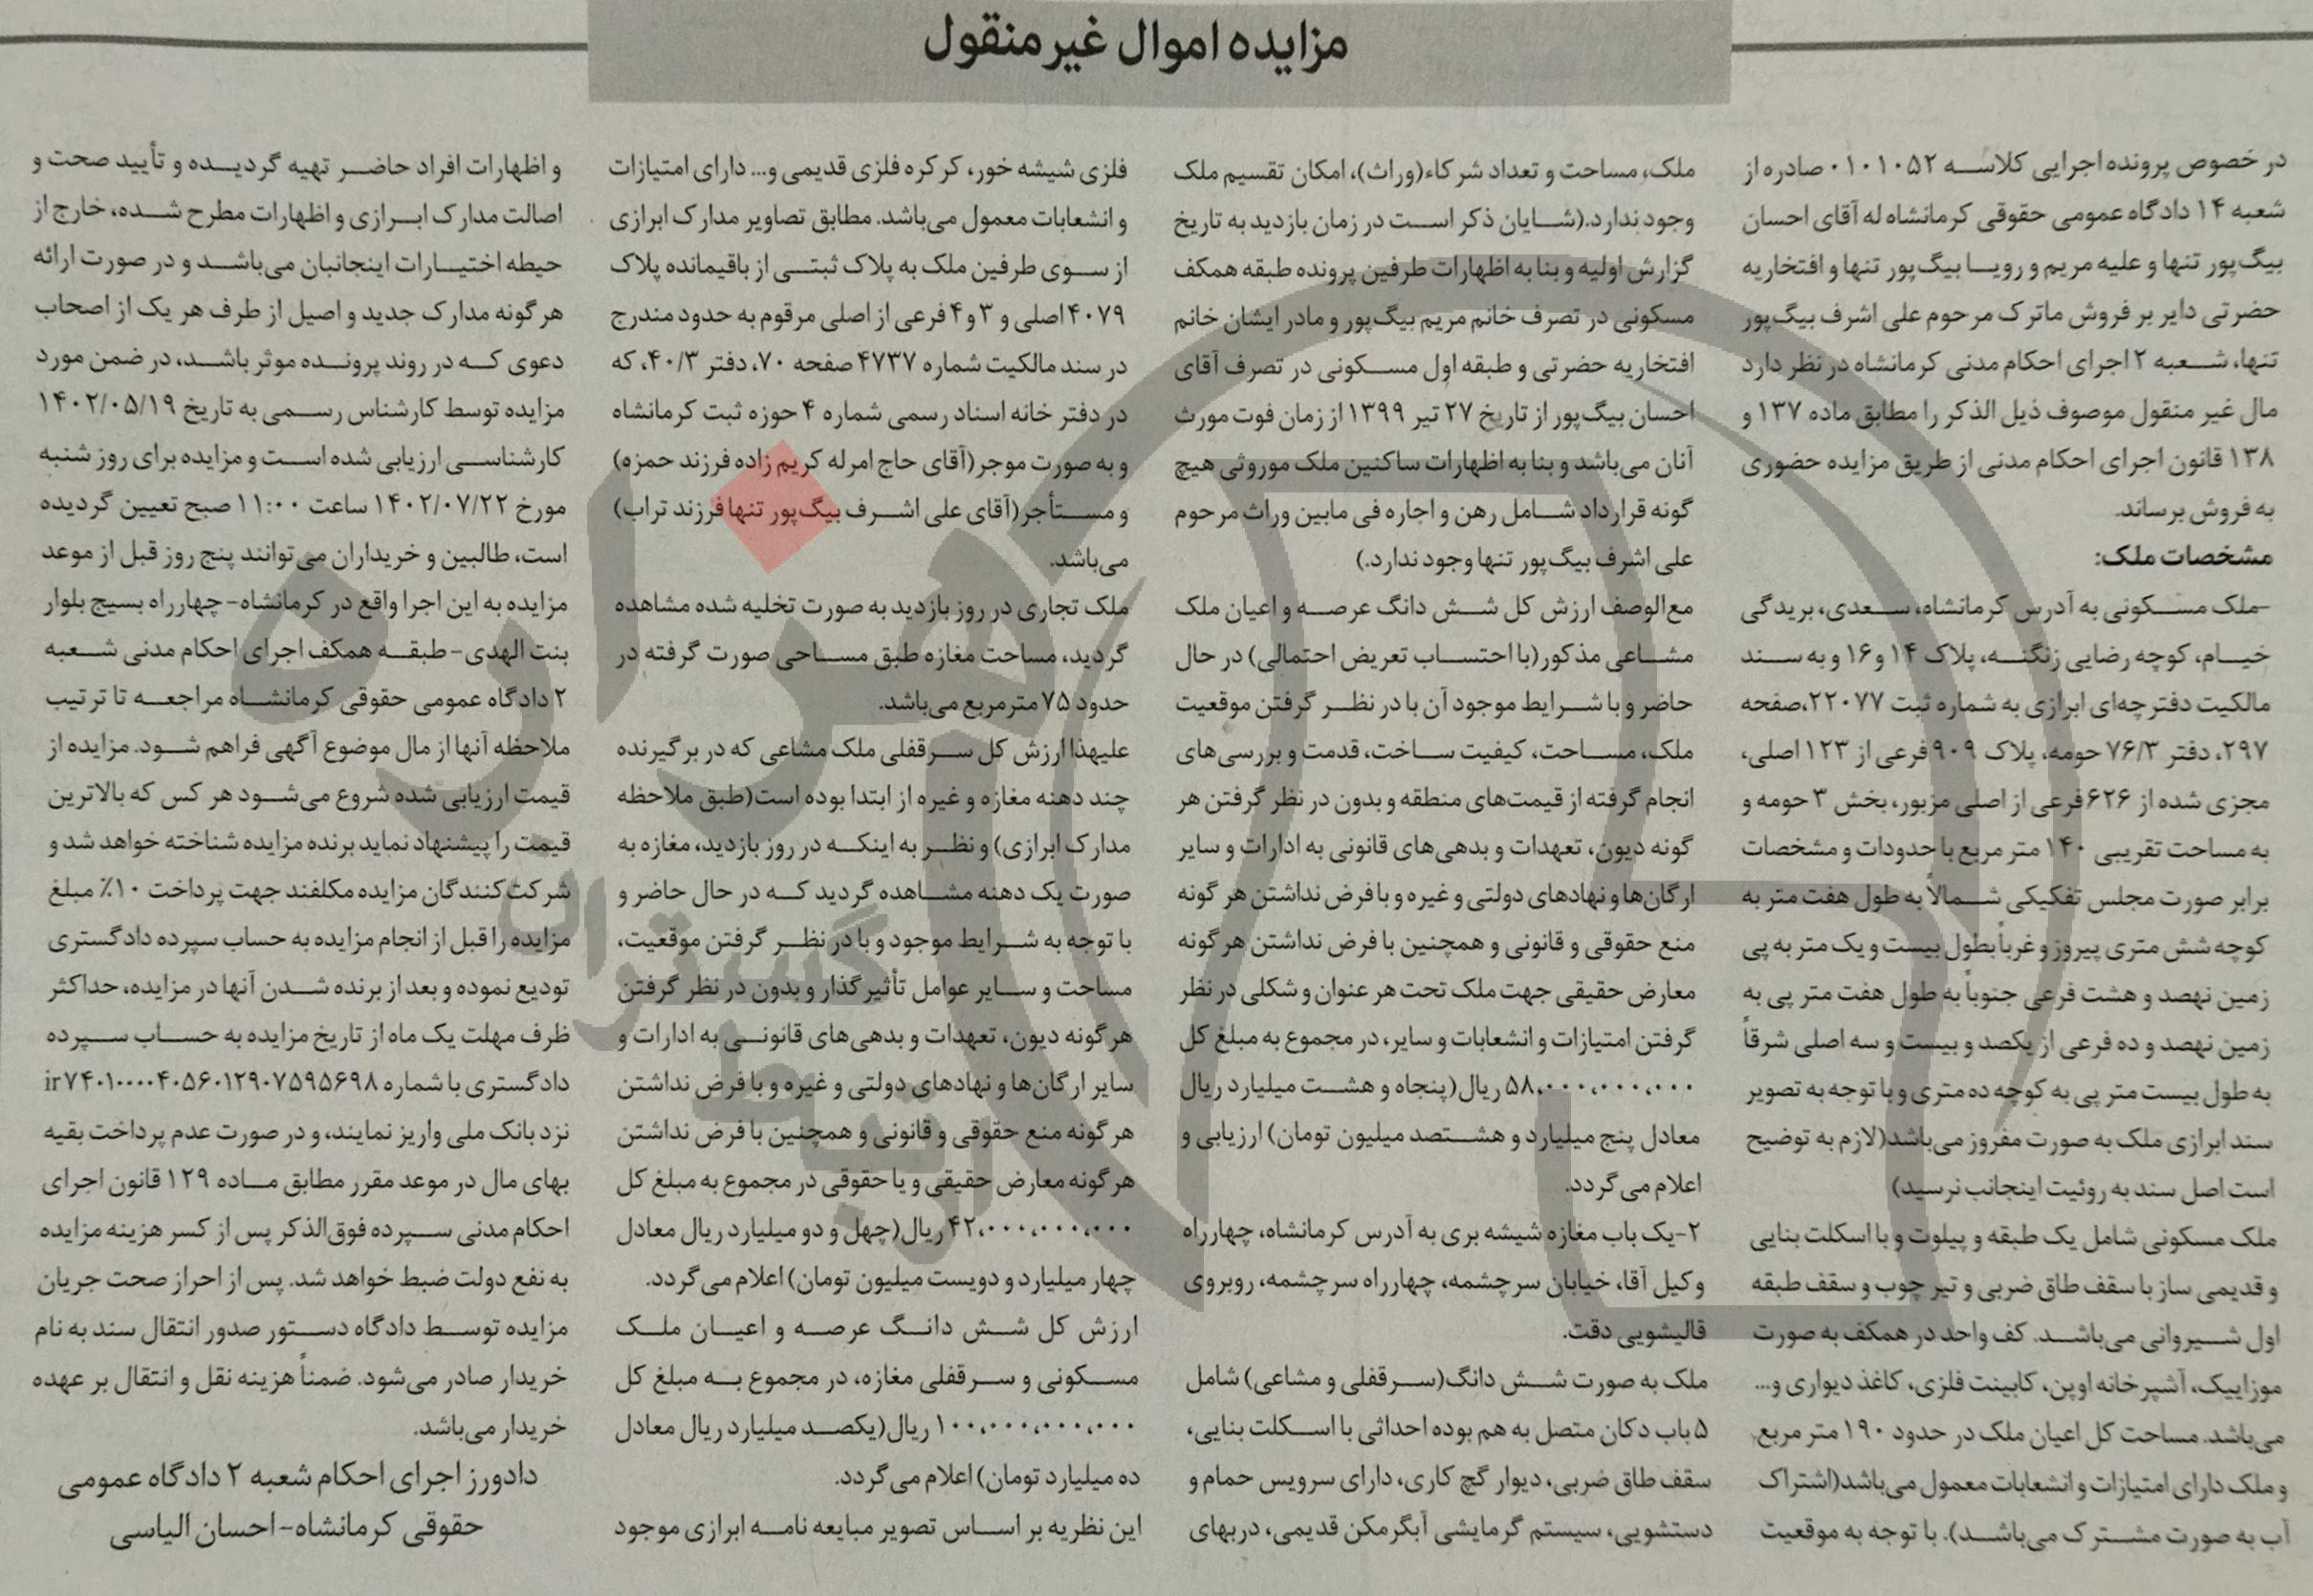 مزایده اموال غیرمنقول
در خصوص پرونده اجرایی کلاسه ۰۱۰۱۰۵۲ صادره از
شعبه ۱۴ دادگاه عمومی حقوقی کرمانشاه له آقای احسان
بیگ‌پور تنها و علیه مریم و رویا بیگ‌پور تنها و افتخاریه
حضرتی دایر بر فروش ماترک مرحوم علی اشرف بیگ‌پور
تنها، شعبه ۲ اجرای احکام مدنی کرمانشاه در نظر دارد
مال غیر منقول موصوف ذیل الذکر را مطابق ماده ۱۳۷ و
۱۳۸ قانون اجرای احکام مدنی از طریق مزایده حضوری
به فروش برساند.
مشخصات ملک:
-ملک مسکونی به آدرس کرمانشاه، سعدی، بریدگی
خیام، کوچه رضایی زنگنه، پلاک ۱۴ و ۱۶ و به سند
مالکیت دفترچه‌ای ابرازی به شماره ثبت ۲۲۰۷۷،صفحه
۲۹۷، دفتر ۷۶/۳ حومه، پلاک ۹۰۹ فرعی از ۱۲۳ اصلی،
مجزی شده از ۶۲۶ فرعی از اصلی مزبور، بخش ۳ حومه و
به مساحت تقریبی ۱۴۰ متر مربع با حدودات و مشخصات
برابر صورت مجلس تفکیکی شمالاً به طول هفت متر به
کوچه شش متری پیروز و غرباً بطول بیست و یک متر به پی
زمین نهصد و هشت فرعی جنوباً به طول هفت متر پی به
زمین نهصد و ده فرعی از یکصد و بیست و سه اصلی شرقاً
به طول بیست متر پی به کوچه ده متری و با توجه به تصویر
سند ابرازی ملک به صورت مفروز می‌باشد(لازم به توضیح
است اصل سند به روئیت اینجانب نرسید)
ملک مسکونی شامل یک طبقه و پیلوت و با اسکلت بنایی
و قدیمی ساز با سقف طاق ضربی و تیر چوب و سقف طبقه
اول شیروانی می‌باشد. کف واحد در همکف به صورت
موزاییک، آشپرخانه اوپن، کابینت فلزی، کاغذ دیواری و...
می‌باشد. مساحت کل اعیان ملک در حدود ۱۹۰ متر مربع
و ملک دارای امتیازات و انشعابات معمول می‌باشد(اشتراک
آب به صورت مشترک می‌باشد). با توجه به موقعیت
ملک، مساحت و تعداد شرکاء(وراث)، امکان تقسیم ملک
وجود ندارد.(شایان ذکر است در زمان بازدید به تاریخ
گزارش اولیه و بنا به اظهارات طرفین پرونده طبقه همکف
مسکونی در تصرف خانم مریم بیگ‌پور و مادر ایشان خانم
افتخاریه حضرتی و طبقه اول مسکونی در تصرف آقای
احسان بیگ‌پور از تاریخ ۲۷ تیر ۱۳۹۹ از زمان فوت مورث
آنان می‌باشد و بنا به اظهارات ساکنین ملک موروثی هیچ
گونه قرارداد شامل رهن و اجاره فی مابین وراث مرحوم
علی اشرف بیگ‌پور تنها وجود ندارد.)
مع‌الوصف ارزش کل شش دانگ عرصه و اعیان ملک
مشاعی مذکور(با احتساب تعریض احتمالی) در حال
حاضر و با شرایط موجود آن با در نظر گرفتن موقعیت
ملک، مساحت، کیفیت ساخت، قدمت و بررسی‌های
انجام گرفته از قیمت‌های منطقه و بدون در نظر گرفتن هر
گونه دیون، تعهدات و بدهی‌های قانونی به ادارات و سایر
ارگان‌ها و نهادهای دولتی و غیره و با فرض نداشتن هر گونه
منع حقوقی و قانونی و همچنین با فرض نداشتن هرگونه
معارض حقیقی جهت ملک تحت هر عنوان و شکلی در نظر
گرفتن امتیازات و انشعابات و سایر، در مجموع به مبلغ کل
۵۸،۰۰۰،۰۰۰،۰۰۰ ریال(پنجاه و هشت میلیارد ریال
معادل پنج میلیارد و هشتصد میلیون تومان) ارزیابی و
اعلام می‌گردد.
۲-یک باب مغازه شیشه بری به آدرس کرمانشاه، چهارراه
وکیل آقا، خیابان سرچشمه، چهارراه سرچشمه، روبروی
قالیشویی دقت.
ملک به صورت شش دانگ(سرقفلی و مشاعی) شامل
۵ باب دکان متصل به هم بوده احداثی با اسکلت بنایی،
سقف طاق ضربی، دیوار گچ کاری، دارای سرویس حمام و
دستشویی، سیستم گرمایشی آبگرمکن قدیمی، دربهای
فلزی شیشه خور، کرکره فلزی قدیمی و... دارای امتیازات
و انشعابات معمول می‌باشد. مطابق تصاویر مدارک ابرازی
از سوی طرفین ملک به پلاک ثبتی از باقیمانده پلاک
۴۰۷۹ اصلی و ۳ و ۴ فرعی از اصلی مرقوم به حدود مندرج
در سند مالکیت شماره ۴۷۳۷ صفحه ۷۰، دفتر ۴۰/۳، که
در دفتر خانه اسناد رسمی شماره ۴ حوزه ثبت کرمانشاه
و به صورت موجر(آقای حاج امرله کریم زاده فرزند حمزه)
و مستأجر(آقای علی اشرف بیگ‌پور تنها فرزند تراب)
می‌باشد.
ملک تجاری در روز بازدید به صورت تخلیه شده مشاهده
گردید، مساحت مغازه طبق مساحی صورت گرفته در
حدود ۷۵ مترمربع می‌باشد.
علیهذا ارزش کل سرقفلی ملک مشاعی که در بر گیرنده
چند دهنه مغازه و غیره از ابتدا بوده است(طبق ملاحظه
مدارک ابرازی) و نظر به اینکه در روز بازدید، مغازه به
صورت یک دهنه مشاهده گردید که در حال حاضر و
با توجه به شرایط موجود و با در نظر گرفتن موقعیت،
مساحت و سایر عوامل تأثیرگذار و بدون در نظر گرفتن
هرگونه دیون، تعهدات و بدهی‌های قانونی به ادارات و
سایر ارگان‌ها و نهادهای دولتی و غیره و با فرض نداشتن
هرگونه منع حقوقی و قانونی و همچنین با فرض نداشتن
هرگونه معارض حقیقی و یا حقوقی در مجموع به مبلغ کل
۴۲،۰۰۰،۰۰۰،۰۰۰ ریال(چهل و دو میلیارد ریال معادل
چهار میلیارد و دویست میلیون تومان) اعلام می‌گردد.
ارزش کل شش دانگ عرصه و اعیان ملک
مسکونی و سرقفلی مغازه، در مجموع به مبلغ کل
۱۰۰،۰۰۰،۰۰۰،۰۰۰ ریال(یکصد میلیارد ریال معادل
ده میلیارد تومان) اعلام می‌گردد.
این نظریه بر اساس تصویر مبایعه نامه ابرازی موجود
و اظهارات افراد حاضر تهیه گردیده و تأیید صحت و
اصالت مدارک ابرازی و اظهارات مطرح شده، خارج از
حیطه اختیارات اینجانبان می‌باشد و در صورت ارائه
هرگونه مدارک جدید و اصیل از طرف هر یک از اصحاب
دعوی که در روند پرونده موثر باشد، در ضمن مورد
مزایده توسط کارشناس رسمی به تاریخ ۱۴۰۲/۰۵/۱۹
کارشناسی ارزیابی شده است و مزایده برای روز شنبه
مورخ ۱۴۰۲/۰۷/۲۲ ساعت ۱۱:۰۰ صبح تعیین گردیده
است، طالبین و خریداران می‌توانند پنج روز قبل از موعد
مزایده به این اجرا واقع در کرمانشاه- چهارراه بسیج بلوار
بنت الهدی- طبقه همکف اجرای احکام مدنی شعبه
۲ دادگاه عمومی حقوقی کرمانشاه مراجعه تا ترتیب
ملاحظه آنها از مال موضوع آگهی فراهم شود. مزایده از
قیمت ارزیابی شده شروع می‌شود هر کس که بالاترین
قیمت را پیشنهاد نماید برنده مزایده شناخته خواهد شد و
شرکت‌کنندگان مزایده مکلفند جهت پرداخت ۱۰٪ مبلغ
مزایده را قبل از انجام مزایده به حساب سپرده دادگستری
تودیع نموده و بعد از برنده شدن آنها در مزایده، حداکثر
ظرف مهلت یک ماه از تاریخ مزایده به حساب سپرده
دادگستری با شماره ir۷۴۰۱۰۰۰۰۴۰۵۶۰۱۲۹۰۷۵۹۵۶۹۸
نزد بانک ملی واریز نمایند، و در صورت عدم پرداخت بقیه
بهای مال در موعد مقرر مطابق ماده ۱۲۹ قانون اجرای
احکام مدنی سپرده فوق‌الذکر پس از کسر هزینه مزایده
به نفع دولت ضبط خواهد شد. پس از احراز صحت جریان
مزایده توسط دادگاه دستور صدور انتقال سند به نام
خریدار صادر می‌شود. ضمناً هزینه نقل و انتقال بر عهده
خریدار می‌باشد.
دادورز اجرای احکام شعبه ۲ دادگاه عمومی
حقوقی کرمانشاه- احسان الیاسی